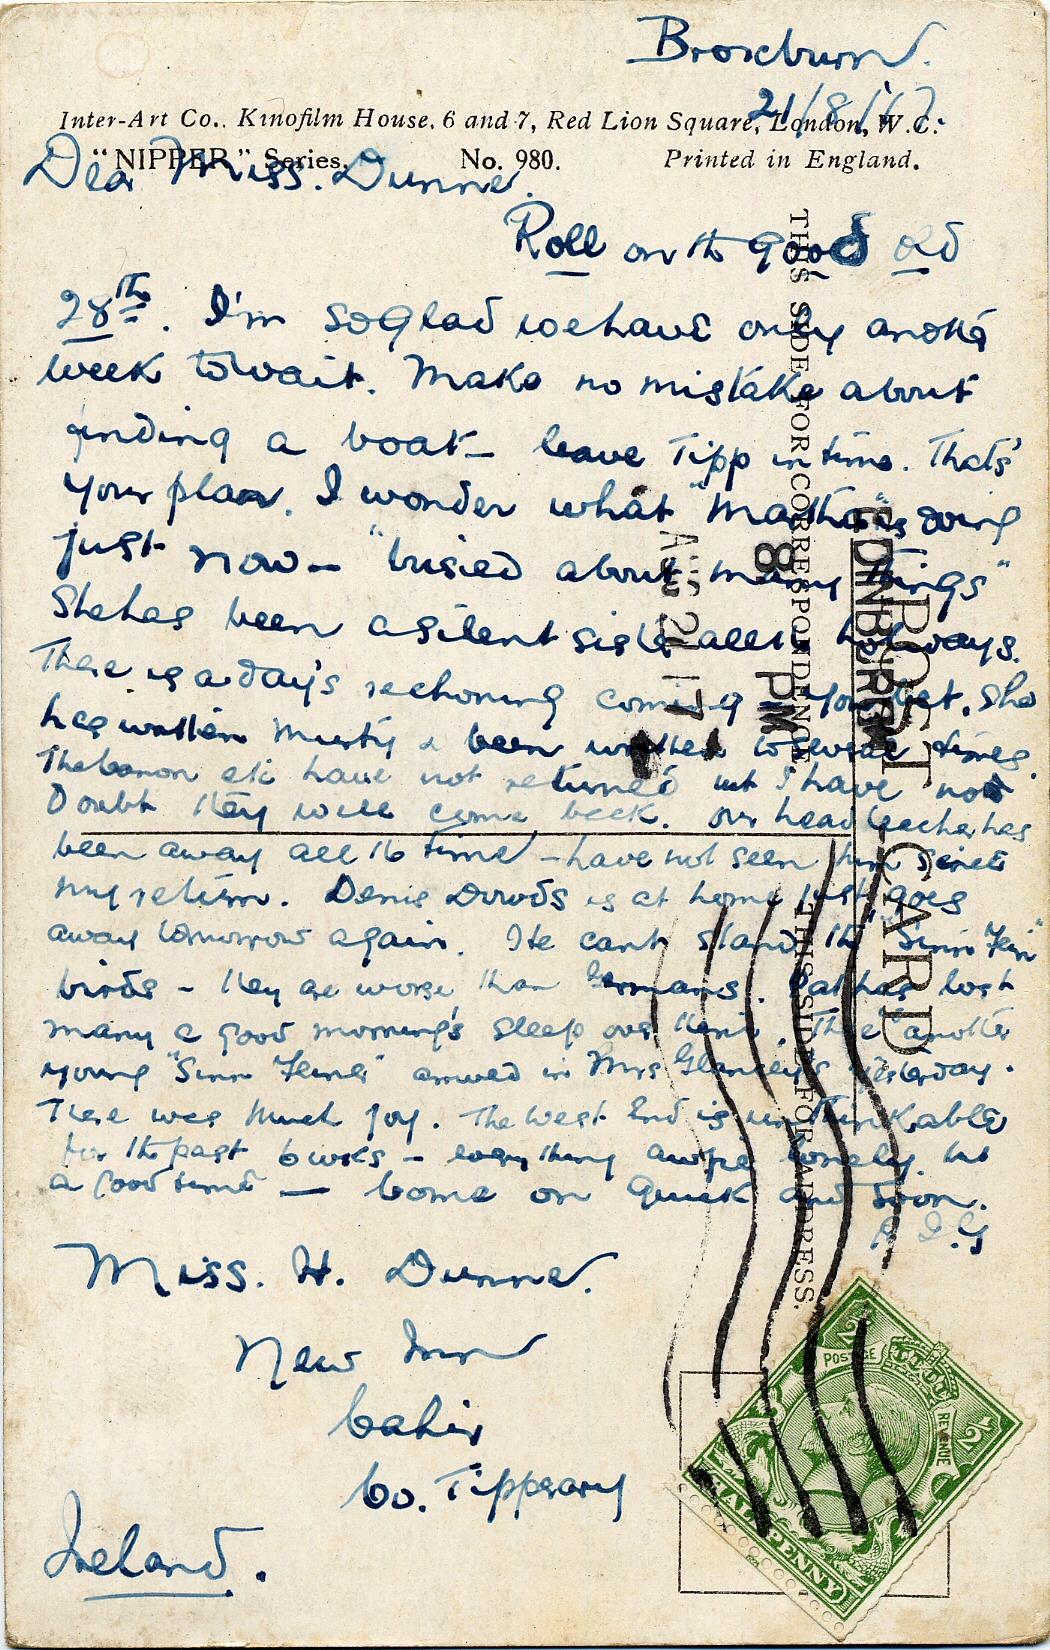 Broxburn.
21/8/17
Inter-Art Co., Kinofilm House, 6 and 7, Red Lion Square, London, W.C.
"NIPPER" Series. No. 980. Printed in England.
Dear Miss. Dunne.
Roll on the good old
28th. I'm so glad we have only another
week to wait. Make no mistake about
finding a boat – leave Tipp in time. That's
your plan. I wonder what "Martha" is doing
just now – "busied about many things"
She has been a silent sister all the holidays.
There is a day's reckoning coming you bet. She
has written & been written to several times.
The etc have not returned but I have no
doubt they will come back. Our head teacher has
been away all the time – have not seen him since
my return. Denis Dowds is at home just goes
away tomorrow again. He can't stand the "Sinn Fein"
birds – they are worse than Germans. Pat has lost
many a good morning's sleep over them. There another
young "Sinn Feiner" arrived in Mrs Glancey's yesterday.
There was much joy. The West End is unthinkable
for the past 6 wks – everything awful lonely. but
a good time — come on quick and soon.
Miss. H. Dunne.
New Inn
Cahir
Co. Tipperary
Ireland.
POST CARD
THIS SIDE FOR CORRESPONDENCE
THIS SIDE FOR ADDRESS.
EDINBURGH
8 PM
AUG 21 17
POSTAGE
REVENUE
HALFPENNY